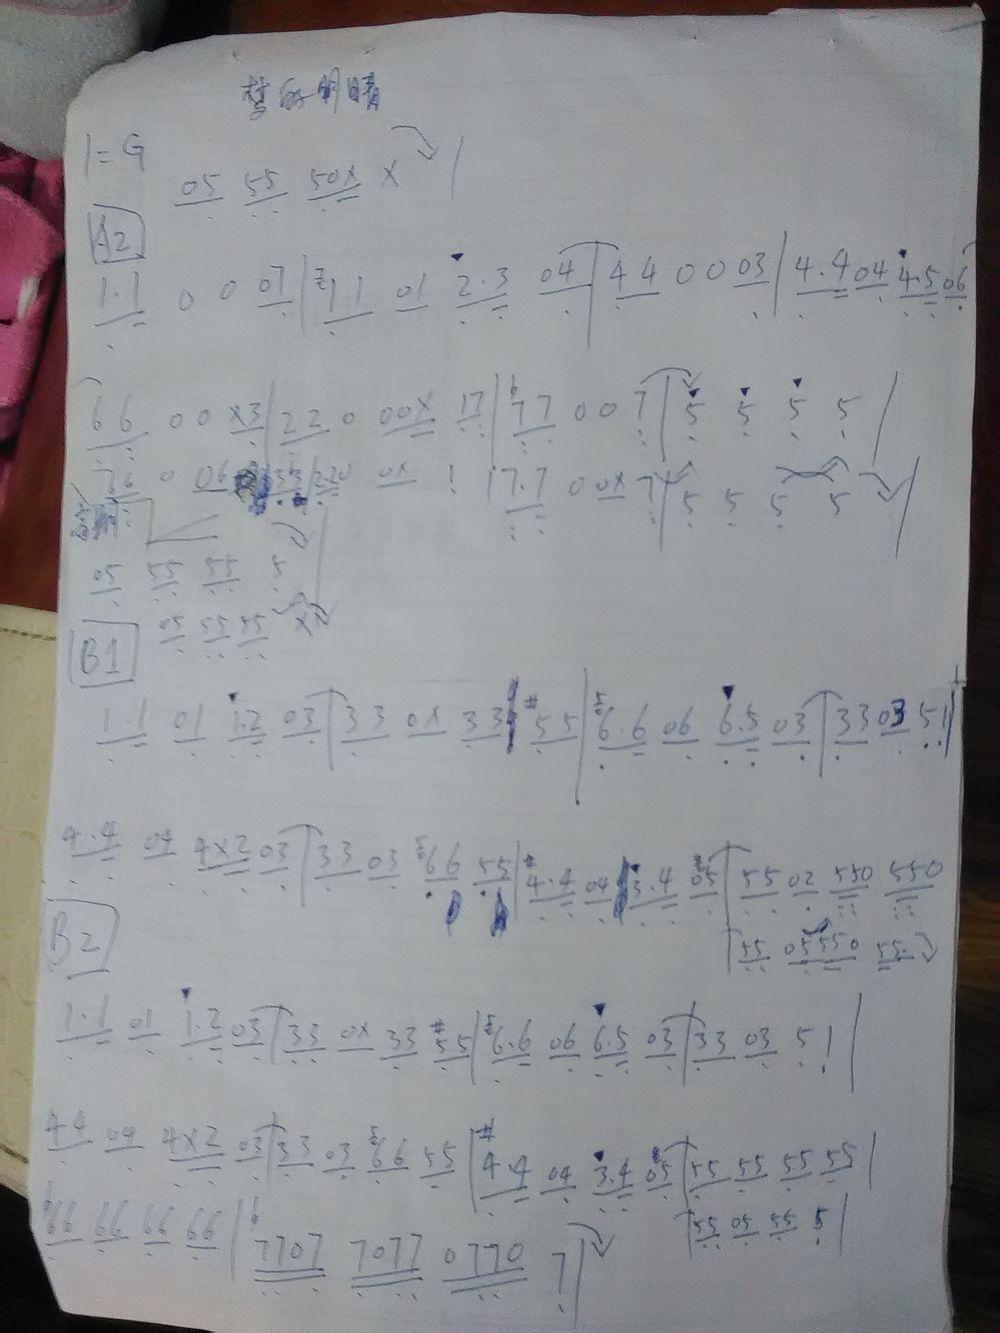 梦的眼睛
1=G
05 55 50X X |
A2
1.1 0 0 07 | 11 01 2.3 04 | 44 0 0 03 | 4.4 04 4.5 06
66 0 0 X3 | 22 0 00X 17 | b77 0 0 7 | 5 5 5 5 |
76 0 06 33 | 220 0X | 7.7 0 0X 7 | 5 5 5 5 |
05 55 55 5 |
05 55 55 X
B1
1.1 01 1.2 03 | 33 0X 33 #55 | 6.6 06 6.5 03 | 33 03 51 |
4.4 04 4X2 03 | 33 03 66 55 | #4.4 04 3.4 05 | 55 02 550 550
B2
55 05550 55.
1.1 01 1.2 03 | 33 0X 33 #55 | 6.6 06 6.5 03 | 33 03 5 1 |
44 04 4X2 03 | 33 03 66 55 | #4.4 04 3.4 05 | 55 55 55 55 |
b66 66 66 66 | b7707 7077 0770 7 |
55 05 55 5 |